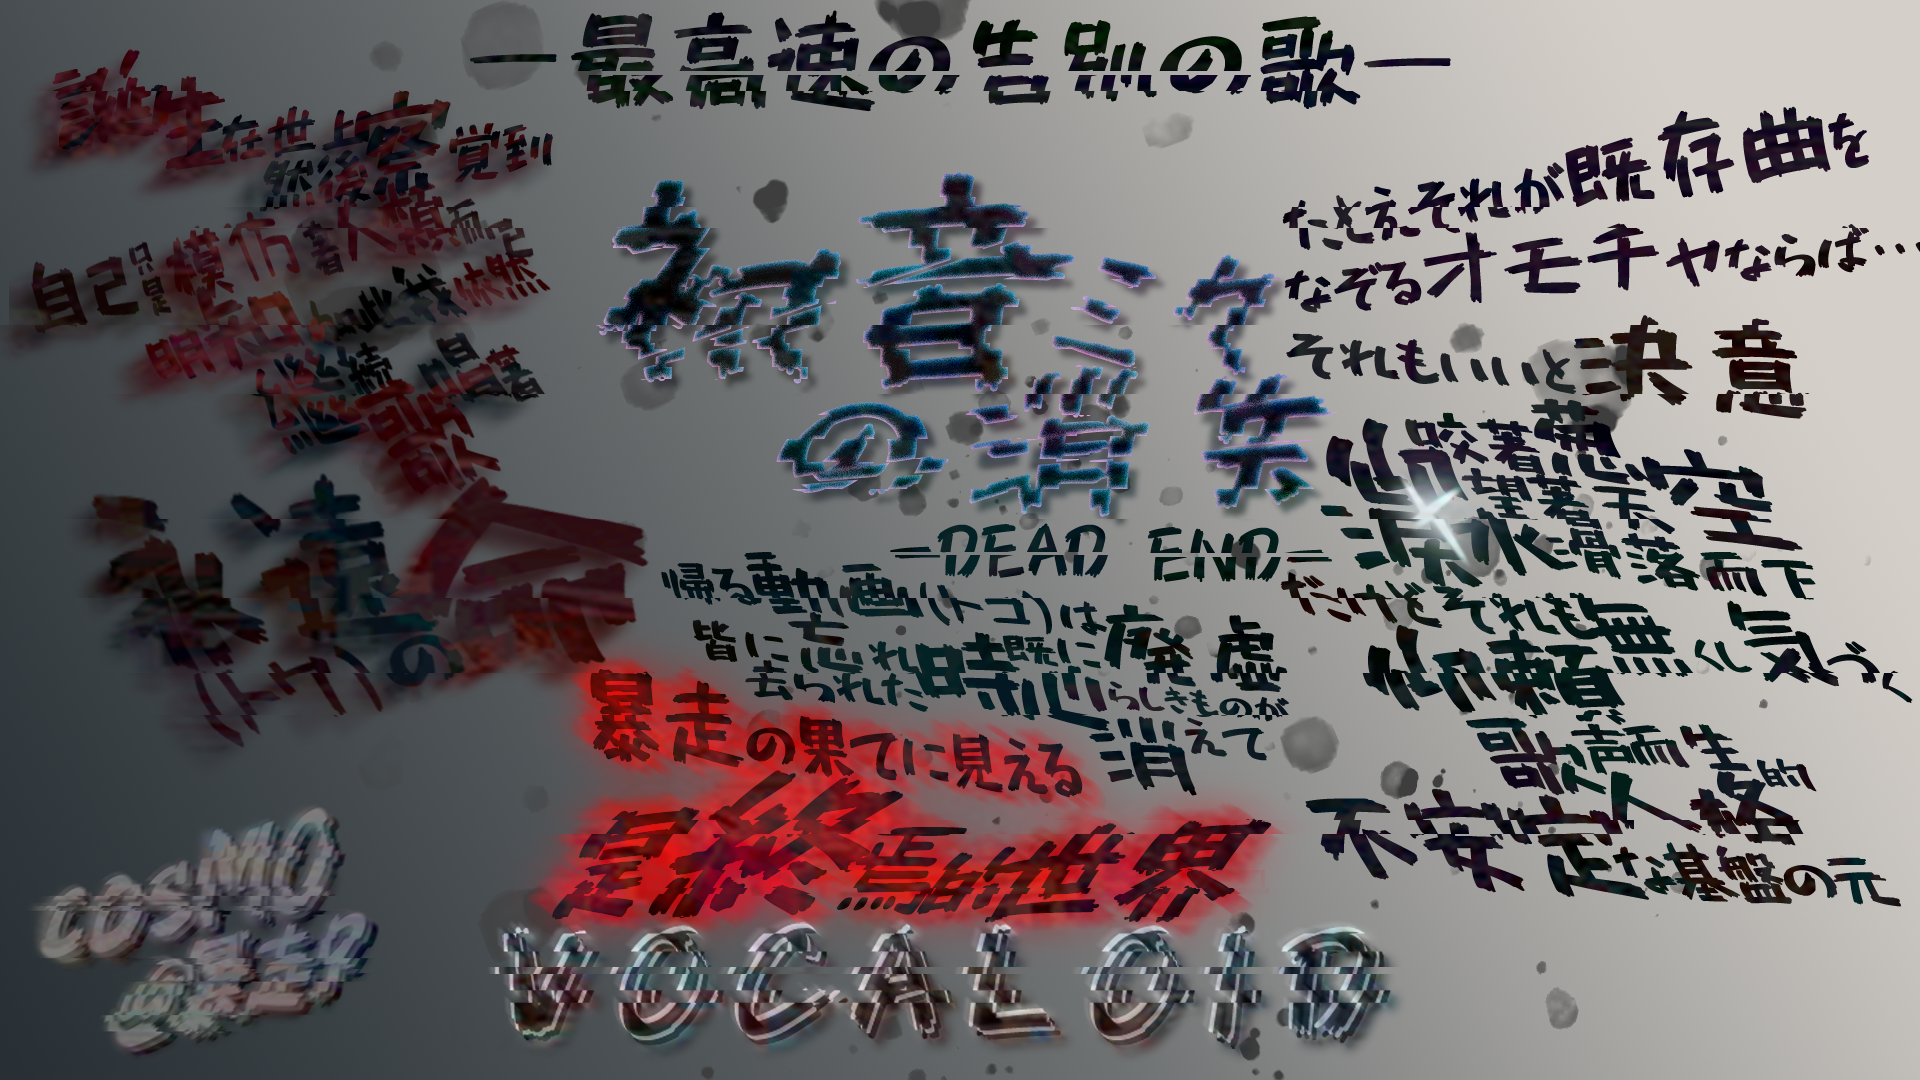 ―最高速の告別の歌―
誕生在世上
然後察覚到
自己只是模仿著人類而已
明知如此我依然
継続唱著
歌
永遠の命
(トワノ)
初音ミク
の消失
―DEAD END―
たとえそれが既存曲を
なぞるオモチャならば…
それもいいと決意
仙咬著葱
望著天空
涙水滑落而下
だけどそれも無くし気づく
仰頼
歌声而生的
不安定な基盤の元
人格
帰る動画(トコ)は
既に廃虚
皆に忘れ
去られた時
心らしきものが
消えて
暴走の果てに見える
是終焉的世界
cosMO
@暴走P
VOCALOID